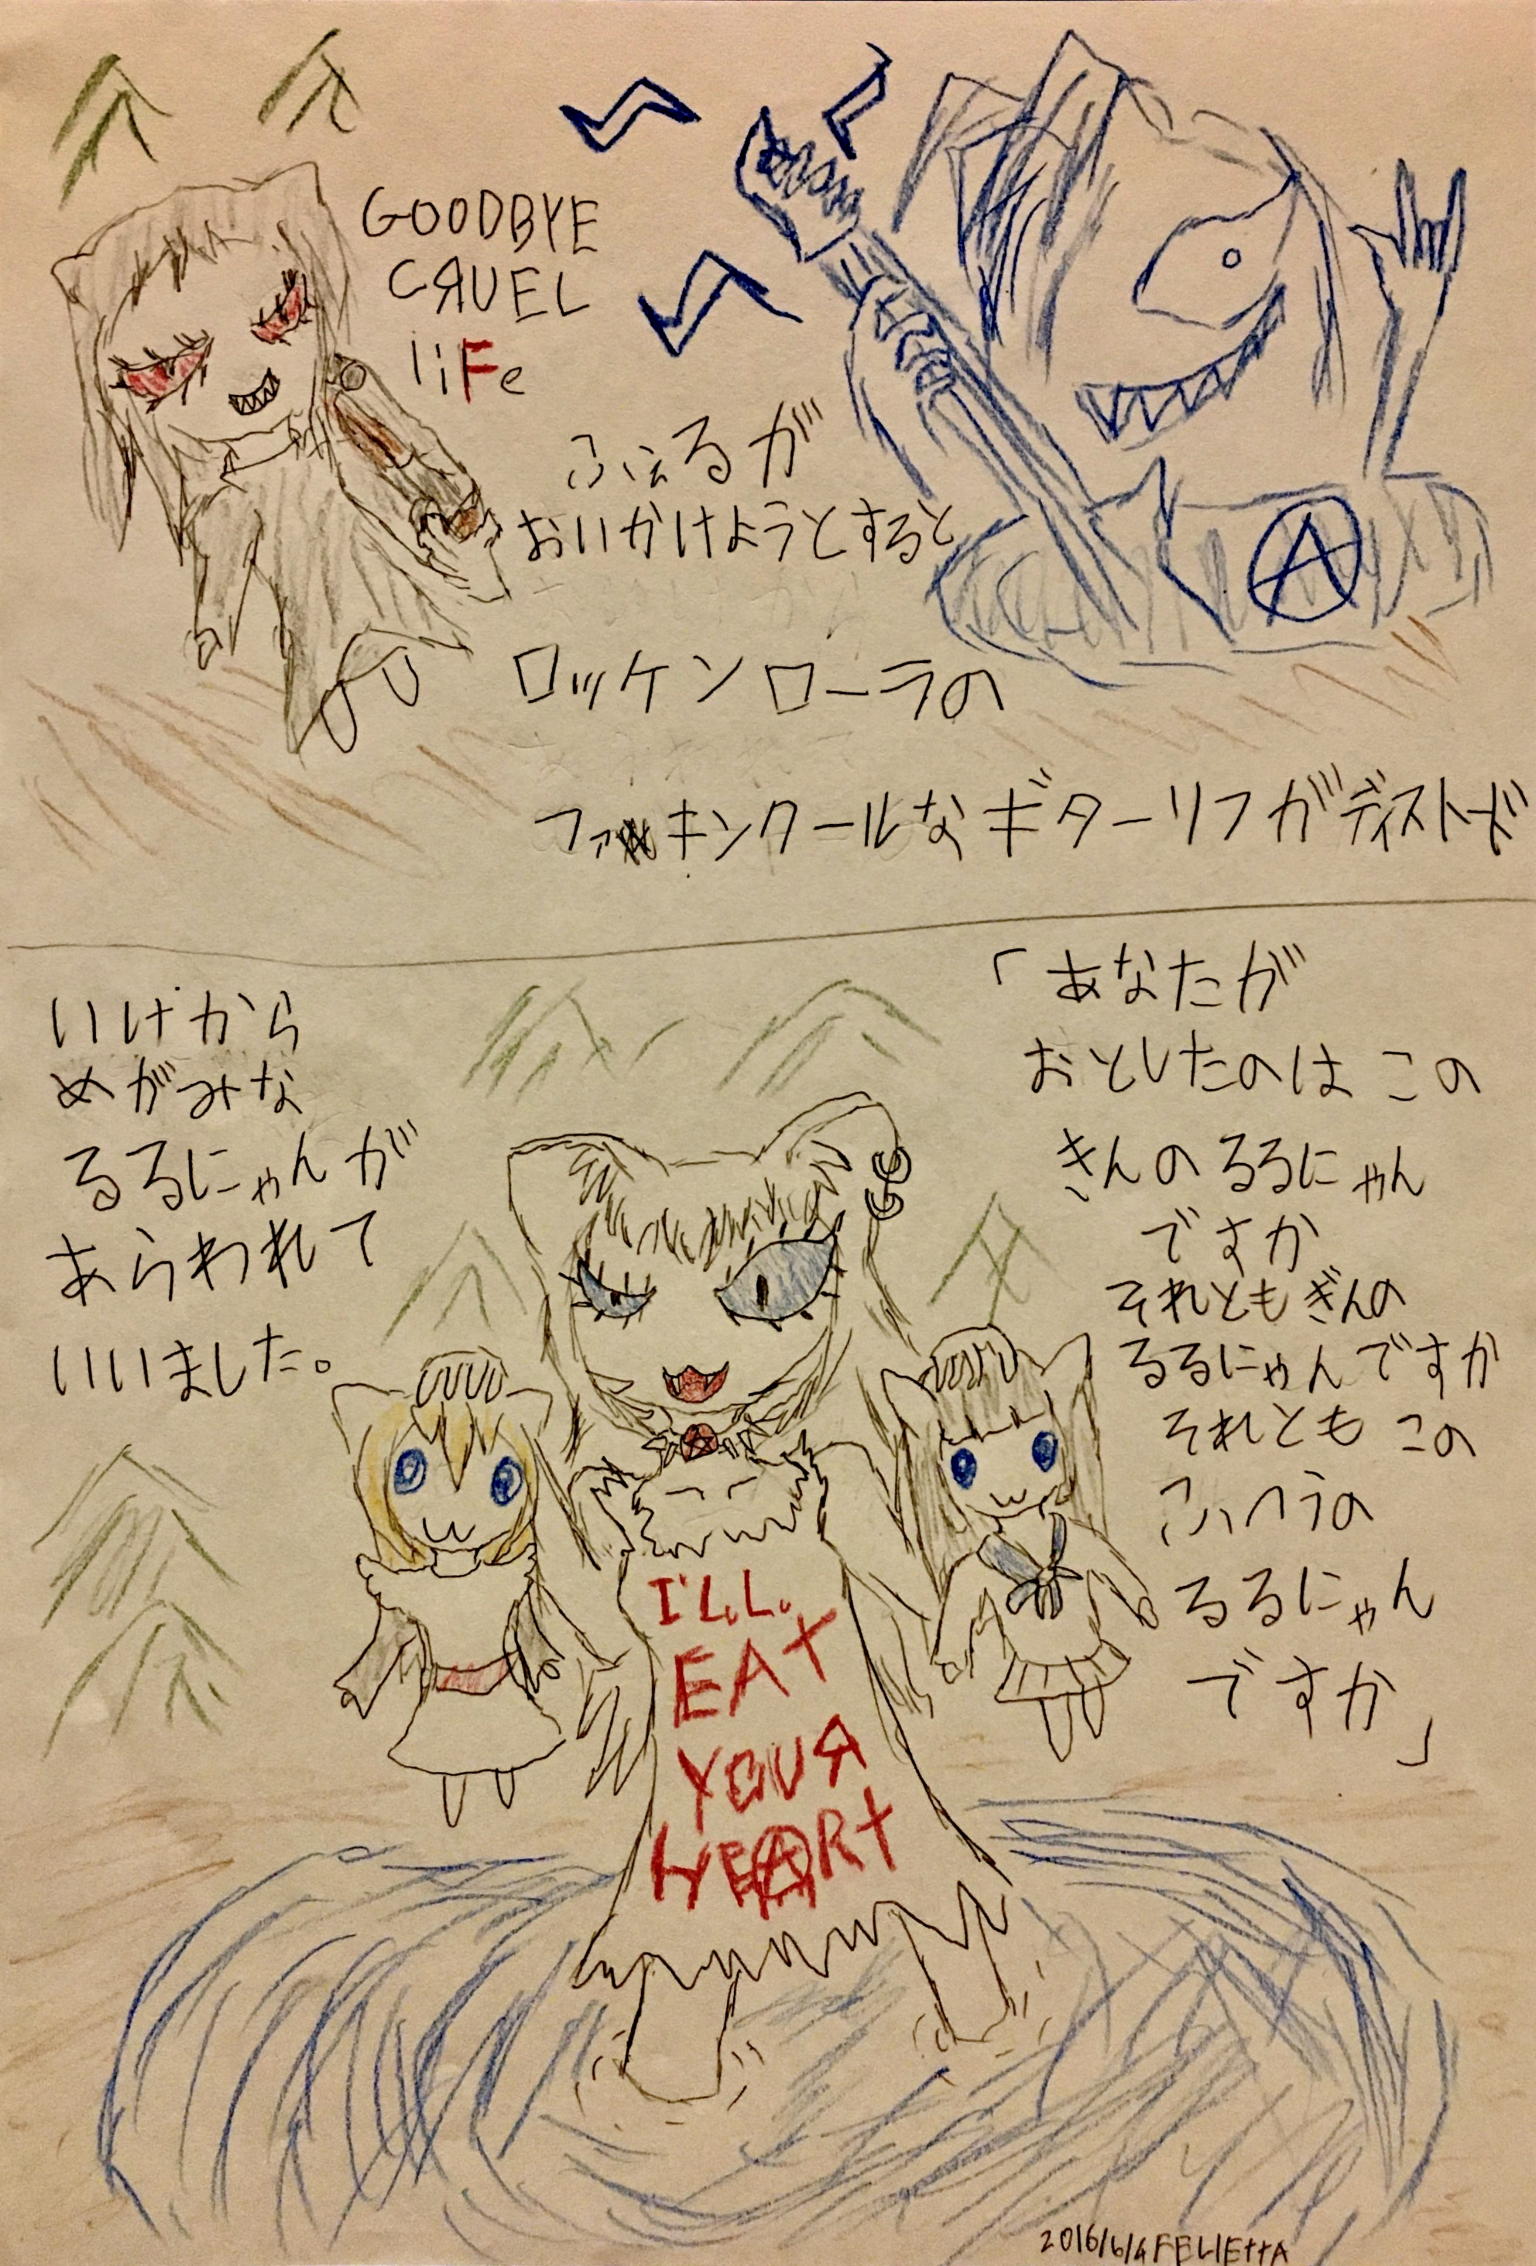 GOODBYE
CЯUEL
liFe
ふぇるが
おいかけようとすると
ロッケンローラの
ファッキンクールなギターリフがディストード
A
いけから
めがみな
るるにゃんが
あらわれて
いいました。
「あなたが
おとしたのは この
きんの るるにゃん
ですか
それとも ぎんの
るるにゃんですか
それとも この
ふつうの
るるにゃん
ですか」
I'LL
EAT
YOUЯ
HEART
2016/6/4 FELIEttA